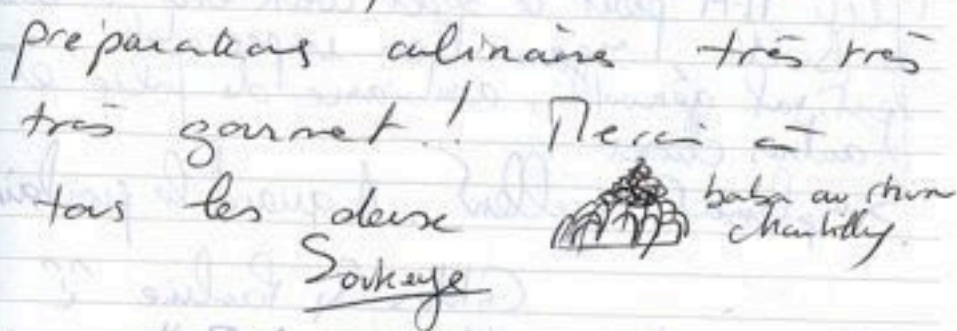 préparations culinaires très très
très gourmet..! Merci à
tous les deux
baba au rhum
chantilly.